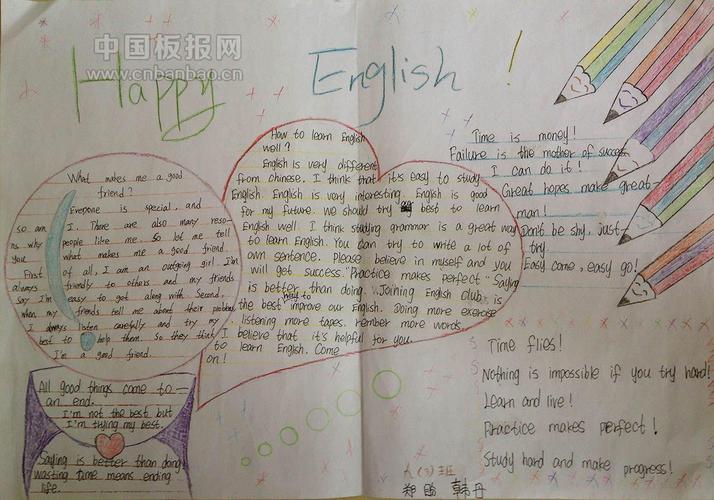 中国板报网
www.cnbanbao.cn
Happy English !
What makes me a good
friend?
Everyone is special, and
so am I. There are also many reso-
ns why people like me. So let me tell
you what makes me a good friend.
First of all, I am an outgoing girl. I'm
always friendly to others and my friends
say I'm easy to get along with. Second,
when my friends tell me about their problem
I always listen carefully and try my
best to help them. So they think
I'm a good friend.
How to learn English
well?
English is very different
from Chinese. I think that it's easy to study
English. English is very interesting. English is good
for my future. We should try best to learn
English well. I think studying grammar is a great way
to learn English. You can try to write a lot of
own sentence. Please believe in myself and you
will get success. "Practice makes perfect" "Saying
is better than doing." Joining English club is
the best way to improve our English. Doing more exercise
listening more tapes. rember more words.
I believe that it's helpful for you.
to learn English. Come
on!
Time is money!
Failure is the mother of success
I can do it!
Great hopes make great-
man!
Dont be shy, just-
try
Easy come, easy go!
All good things come to
an end.
I'm not the best but
I'm trying my best.
Saying is better than doing
wasting time means ending
life.
Time flies!
Nothing is impossible if you try hard!
Learn and live!
Practice makes perfect!
Study hard and make progress!
班
韩丹